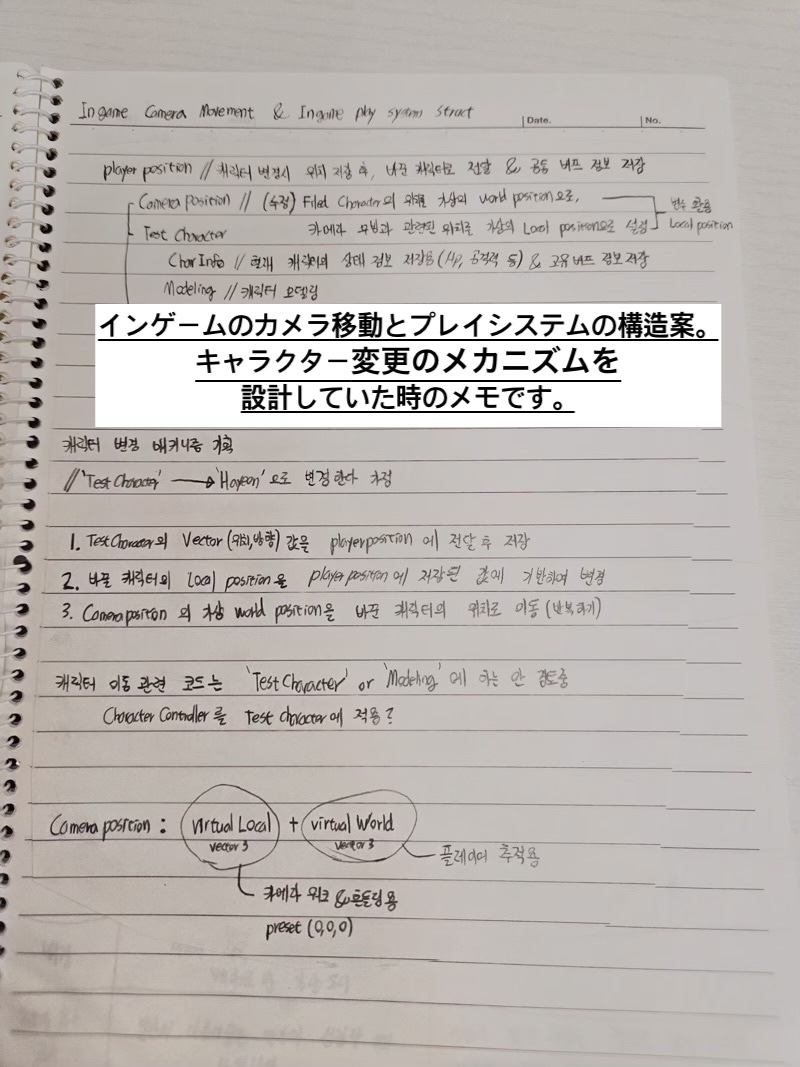 Ingame Camera Movement & Ingame play system struct
Date.
No.
player position // 캐릭터 변경시 위치 저장 후, 바꾼 캐릭터로 전달 & 공통 버프 정보 저장
Camera position // (수정) Filed Character의 위치를 가상의 world position으로,
변수 활용
Test Character 카메라 무빙과 관련된 위치를 가상의 Local position으로 설정
Local position
Char Info // 현재 캐릭터의 상태 정보 저장용 (Hp, 공격력 등) & 고유 버프 정보 저장
Modeling // 캐릭터 모델링
インゲームのカメラ移動とプレイシステムの構造案。
キャラクター変更のメカニズムを
設計していた時のメモです。
캐릭터 변경 매커니즘 기획
// 'Test Character' → 'Hayeon' 으로 변경한다 가정
1. Test Character의 Vector (위치, 방향) 값을 player position 에 전달 후 저장
2. 바꿀 캐릭터의 Local position을 player position에 저장된 값에 기반하여 변경
3. Camera position 의 가상 world position을 바꾼 캐릭터의 위치로 이동 (반복하기)
캐릭터 이동 관련 코드는 'Test Character' or 'Modeling' 에 하는 안 검토중
Character Controller를 Test Character에 적용?
Camera position : virtual Local + virtual World
vector3 vector3
플레이어 추적용
카메라 워크 & 흔들림 용
preset (0,0,0)